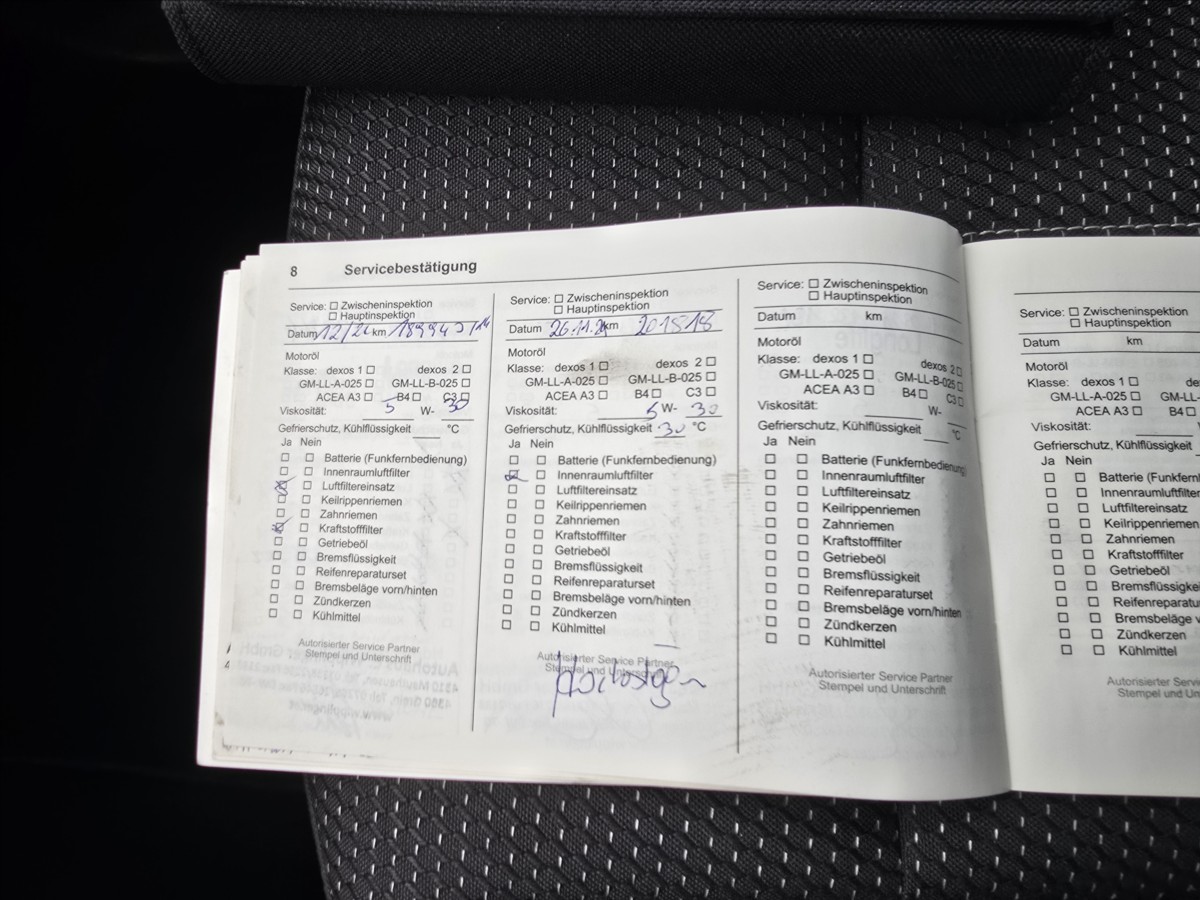 8 Servicebestätigung
Service: ☐ Zwischeninspektion
☐ Hauptinspektion
Datum 12/2 km
Motoröl
Klasse: dexos 1 ☐ dexos 2 ☐
GM-LL-A-025 ☐ GM-LL-B-025 ☐
ACEA A3 ☐ B4 ☐ C3 ☐
Viskosität: 5 W- 30
Gefrierschutz, Kühlflüssigkeit °C
Ja Nein
Batterie (Funkfernbedienung)
Innenraumluftfilter
Luftfiltereinsatz
Keilrippenriemen
Zahnriemen
Kraftstofffilter
Getriebeöl
Bremsflüssigkeit
Reifenreparaturset
Bremsbeläge vorn/hinten
Zündkerzen
Kühlmittel
Autorisierter Service Partner
Stempel und Unterschrift
Service: ☐ Zwischeninspektion
☐ Hauptinspektion
Datum 26.11.24 km 201518
Motoröl
Klasse: dexos 1 ☐ dexos 2 ☐
GM-LL-A-025 ☐ GM-LL-B-025 ☐
ACEA A3 ☐ B4 ☐ C3 ☐
Viskosität: 5 W- 30
Gefrierschutz, Kühlflüssigkeit 30 °C
Ja Nein
Batterie (Funkfernbedienung)
Innenraumluftfilter
Luftfiltereinsatz
Keilrippenriemen
Zahnriemen
Kraftstofffilter
Getriebeöl
Bremsflüssigkeit
Reifenreparaturset
Bremsbeläge vorn/hinten
Zündkerzen
Kühlmittel
Autorisierter Service Partner
Stempel und Unterschrift
Service: ☐ Zwischeninspektion
☐ Hauptinspektion
Datum km
Motoröl
Klasse: dexos 1 ☐ dexos 2 ☐
GM-LL-A-025 ☐ GM-LL-B-025 ☐
ACEA A3 ☐ B4 ☐ C3 ☐
Viskosität: W-
Gefrierschutz, Kühlflüssigkeit °C
Ja Nein
Batterie (Funkfernbedienung)
Innenraumluftfilter
Luftfiltereinsatz
Keilrippenriemen
Zahnriemen
Kraftstofffilter
Getriebeöl
Bremsflüssigkeit
Reifenreparaturset
Bremsbeläge vorn/hinten
Zündkerzen
Kühlmittel
Autorisierter Service Partner
Stempel und Unterschrift
Service: ☐ Zwischeninspektion
☐ Hauptinspektion
Datum km
Motoröl
Klasse: dexos 1 ☐
GM-LL-A-025 ☐ GM-LL-
ACEA A3 ☐ B4
Viskosität:
Gefrierschutz, Kühlflüssigkeit
Ja Nein
Batterie (Funkfernb
Innenraumluftfilter
Luftfiltereinsatz
Keilrippenriemen
Zahnriemen
Kraftstofffilter
Getriebeöl
Bremsflüssigke
Reifenreparatu
Bremsbeläge v
Zündkerzen
Kühlmittel
Autorisierter Servic
Stempel und Un